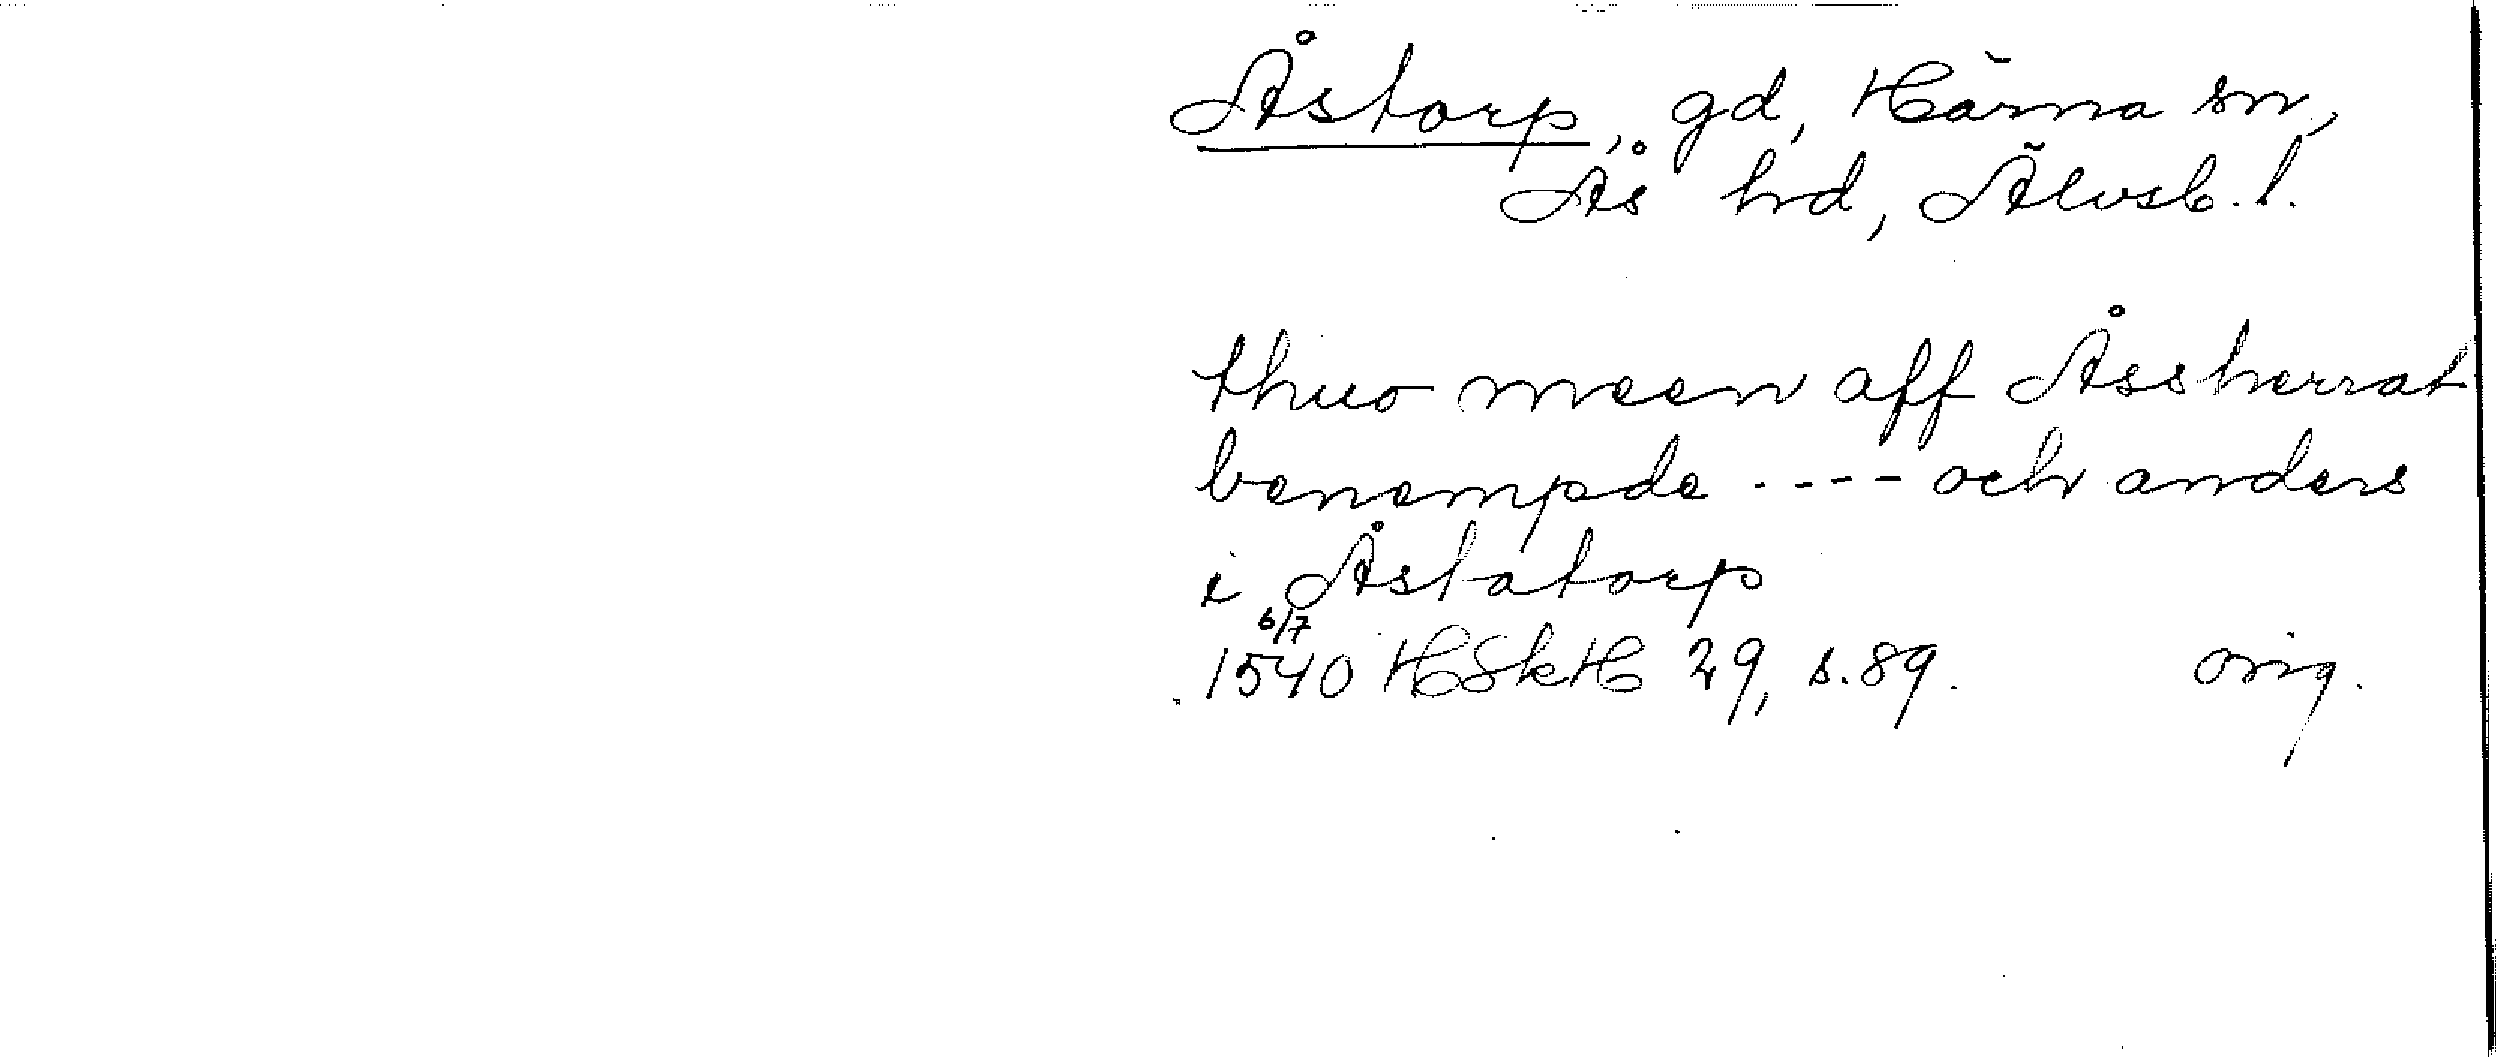 Åstorp, gd, Härna sn,
Ås hd, Älvsb. l.
thuo meen aff Åssherrat
benempde ---- och anders
i Åstatorp
6/7
1540 HSkH 29, s. 89. orig.